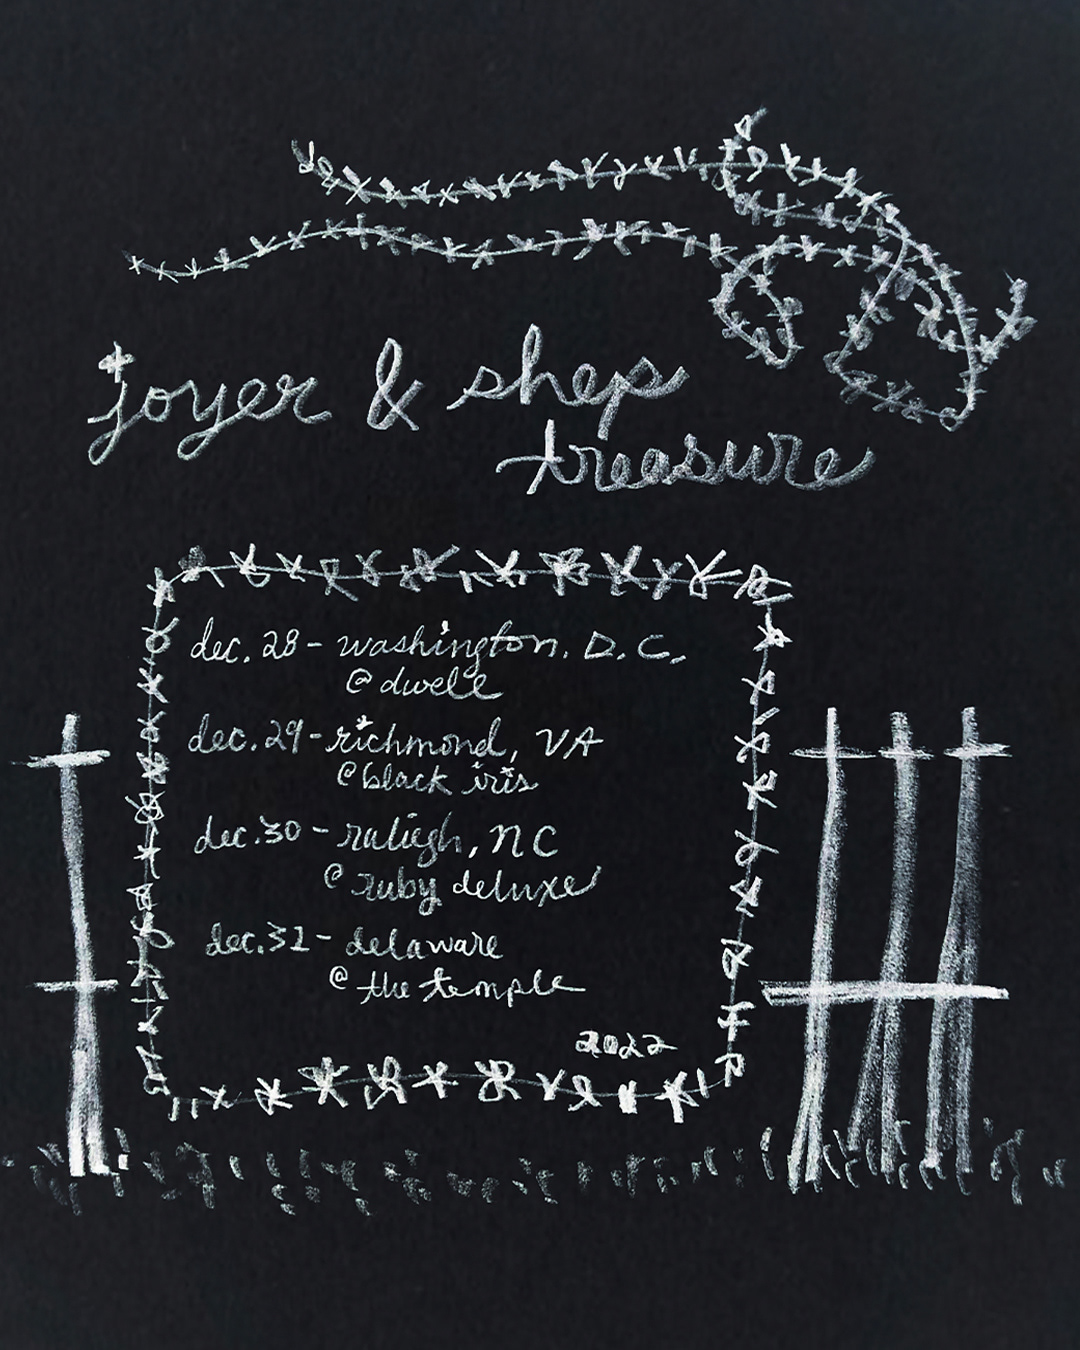 joyer & shep
treasure
dec. 28 - washington. D.C.
@ dwele
dec. 29 - richmond, VA
@ black iris
dec. 30 - raliegh, NC
@ ruby deluxe
dec. 31 - delaware
@ the temple
2022